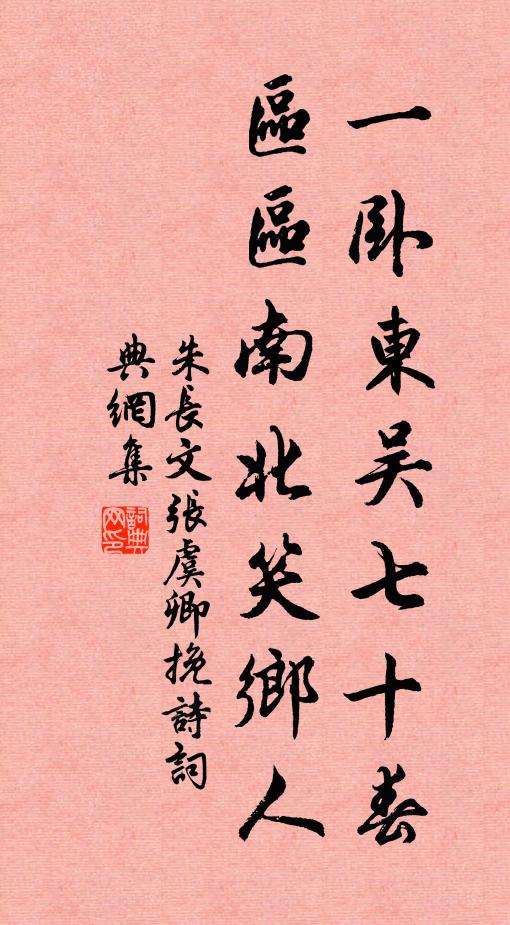 一卧東吴七十春
區區南北笑鄉人
朱長文張虞卿挽詩詞
典網集
詞典網印